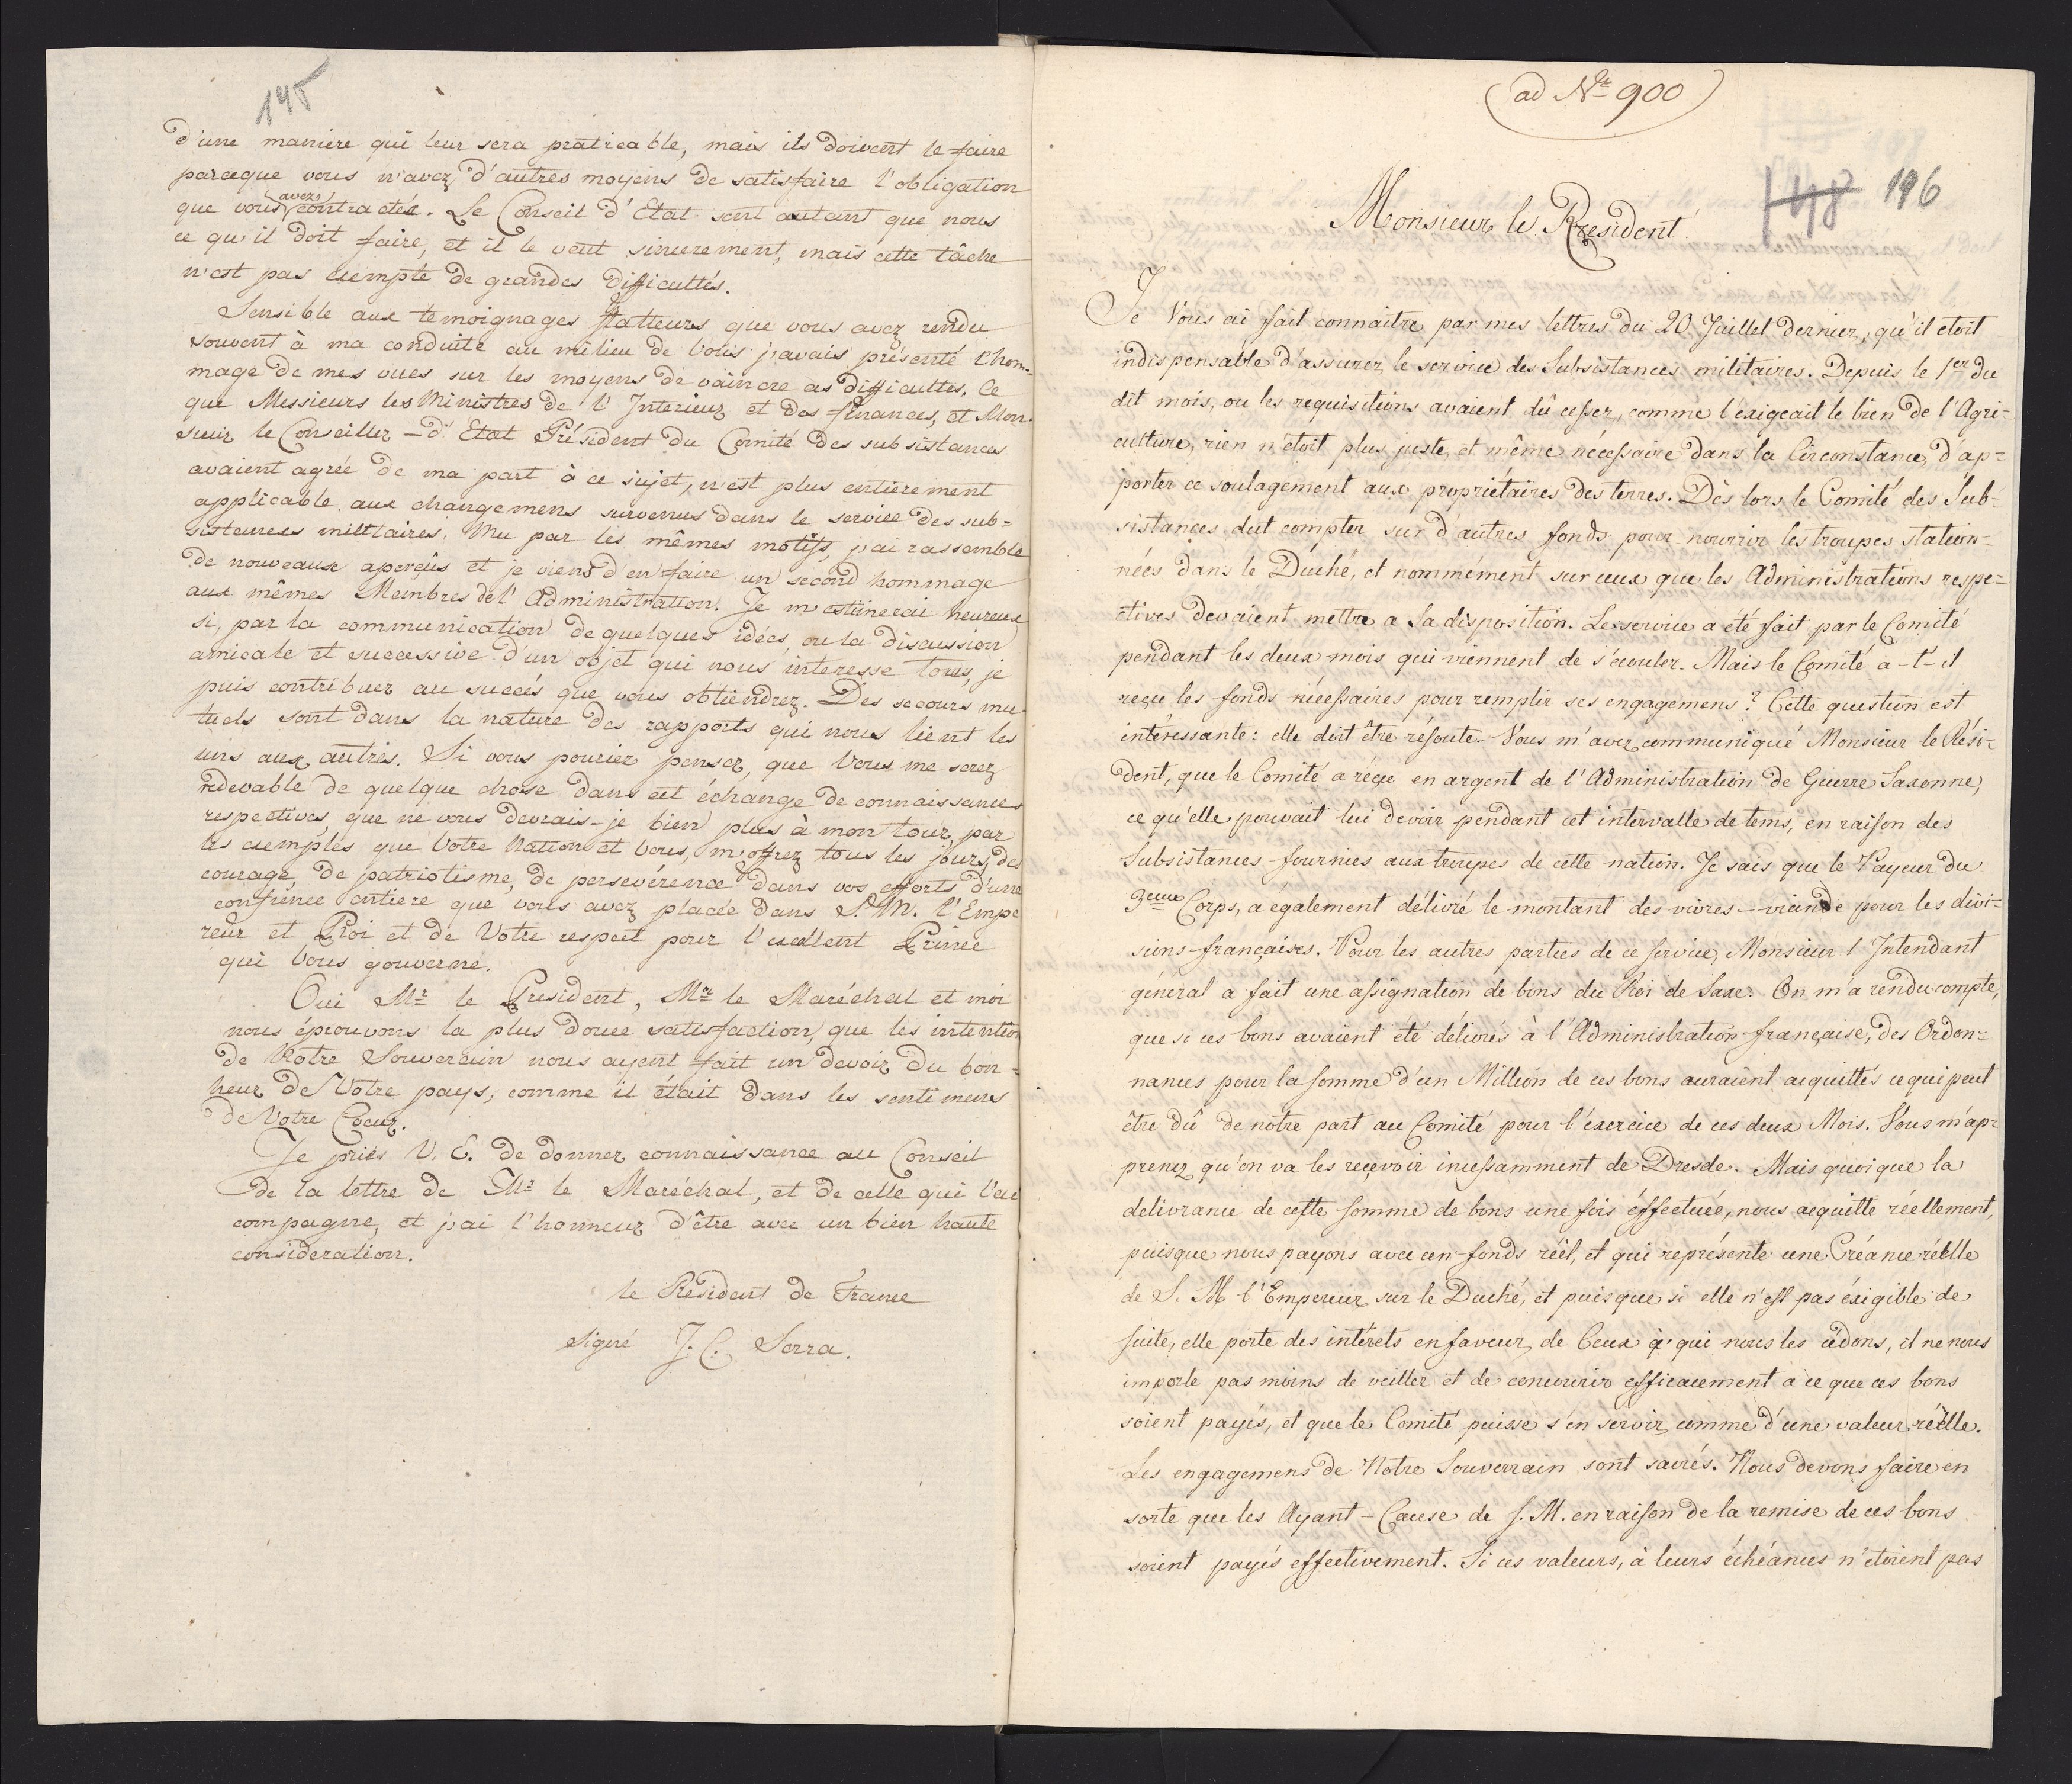 145
d'une maniere qui leur sera praticable, mais ils doivent le faire
parceque vous n'avez d'autres moyens de satisfaire l'obligation
que vous avez contractée. Le Conseil d'Etat sent autant que nous
ce qu'il doit faire, et il le veut sincerement, mais cette tâche
n'est pas exempte de grandes difficultés.
Sensible aux temoignages flatteurs que vous avez rendu
souvent à ma conduite au milieu de Vous j'avais présenté l'hom-
mage de mes vues sur les moyens de vaincre ces difficultes. Ce
que Messieurs les Ministres de l'Interieur et des finances, et Mon-
sieur le Conseiller - d'Etat Président du Comité des subsistances
avaient agrée de ma part à ce sujet, n'est plus entierement
applicable aux changemens survenus dans le service des sub-
sistances militaires. Mu par les mêmes motifs, j'ai rassemblé
de nouveaux aperçûs et je viens d'en faire un second hommage
aux mêmes Membres de l'Administration. Je m'estimerai heureux
si, par la communication de quelques idées, ou la discussion
amicale et successive d'un objet qui nous interesse tous, je
puis contribuer au succés que vous obtiendrez. Des secours mu-
tuels sont dans la nature des rapports qui nous lient les
uns aux autres. Si vous pouriez penser, que Vous me serez
redevable de quelque chose dans cet échange de connaissances
respectives, que ne vous devrais-je bien plus à mon tour, par
les exemples que Votre Nation et Vous, m'offrez tous les jours, de
courage, de patriotisme, de persevérence dans vos efforts d'une
confience entiere que vous avez placée dans S. M. l'Empe
reur et Roi et de Votre respect pour l'excellent Prince
qui Vous gouverne.
Oui Mr le President, Mr le Maréchal et moi
nous éprouvons la plus douce satisfaction, que les intention
de Votre Souverain nous ayent fait un devoir du bon-
heur de Votre pays, comme il était dans les sentimens
de Votre Coeur.
Je priés V. E. de donner connaissance au Conseil
de la lettre de Mr le Maréchal, et de celle qui l'ac
compagne, et j'ai l'honneur d'être avec un bien haute
consideration.
le Résident de France
signé J. C. Serra.
(ad Nr 900)
148 146
Monsieur le President!
Je Vous ai fait connaitre par mes lettres du 20 Juillet dernier, qu'il etoit
indispensable d'assurer le service des Subsistances militaires. Depuis le 1er du
dit mois, ou les requisitions avaient dû cesser, comme l'éxigeait le bien de l'Agri-
culture, rien n'étoit plus juste, et même nécessaire dans la Circonstance, d'ap-
porter ce soulagement aux propriétaires des terres. Dès lors le Comité des Sub-
sistances dut compter sur d'autres fonds pour nourrir les troupes station-
nées dans le Duché, et nommément sur ceux que les Administrations respe-
ctives devaient mettre a sa disposition. Le service a été fait par le Comité
pendant les deux mois qui viennent de s'écouler. Mais le Comité a-t-il
reçu les fonds nécessaires pour remplir ses engagemens? Cette question est
intéressante: elle doit être résoute. Vous m'avez communiqué Monsieur le Rési-
dent, que le Comité a réçu en argent de l'Administration de Guerre Saxonne,
ce qu'elle pouvait lui devoir pendant cet intervalle de tems, en raison des
Subsistances fournies aux troupes de cette nation. Je sais que le Payeur du
3eme Corps, a également délivré le montant des vivres - viande pour les divi-
sions françaises. Pour les autres parties de ce service, Monsieur l'Intendant
général a fait une assignation de bons du Roi de Saxe. On m'a rendu compte,
que si ces bons avaient été délivrés à l'Administration française, des Ordon-
nances pour la somme d'un Million de ces bons auraient acquittés ce qui peut
être dû de notre part au Comité pour l'éxercice de ces deux Mois. Vous m'ap-
prenez qu'on va les reçevoir incessamment de Dresde. Mais quoique la
delivrance de cette somme de bons une fois éffectuée, nous acquitte réellement,
puisque nous payons avec un fonds réel, et qui représente une Créance réelle
de S. M l'Empereur sur le Duché, et puisque si elle n'est pas éxigible de
suite, elle porte des intérets en faveur de Ceux à qui nous les cédons, il ne nous
importe pas moins de veiller et de concourir efficacement a ce que ces bons
soient payés, et que le Comité puisse s'en servir comme d'une valeur réelle.
Les engagemens de Notre Souverrain sont sacrés. Nous devons faire en
sorte que les Ayant-Cause de S. M. en raison de la remise de ces bons
soient payés effectivement. Si ces valeurs, à leurs échéances n'etoient pas